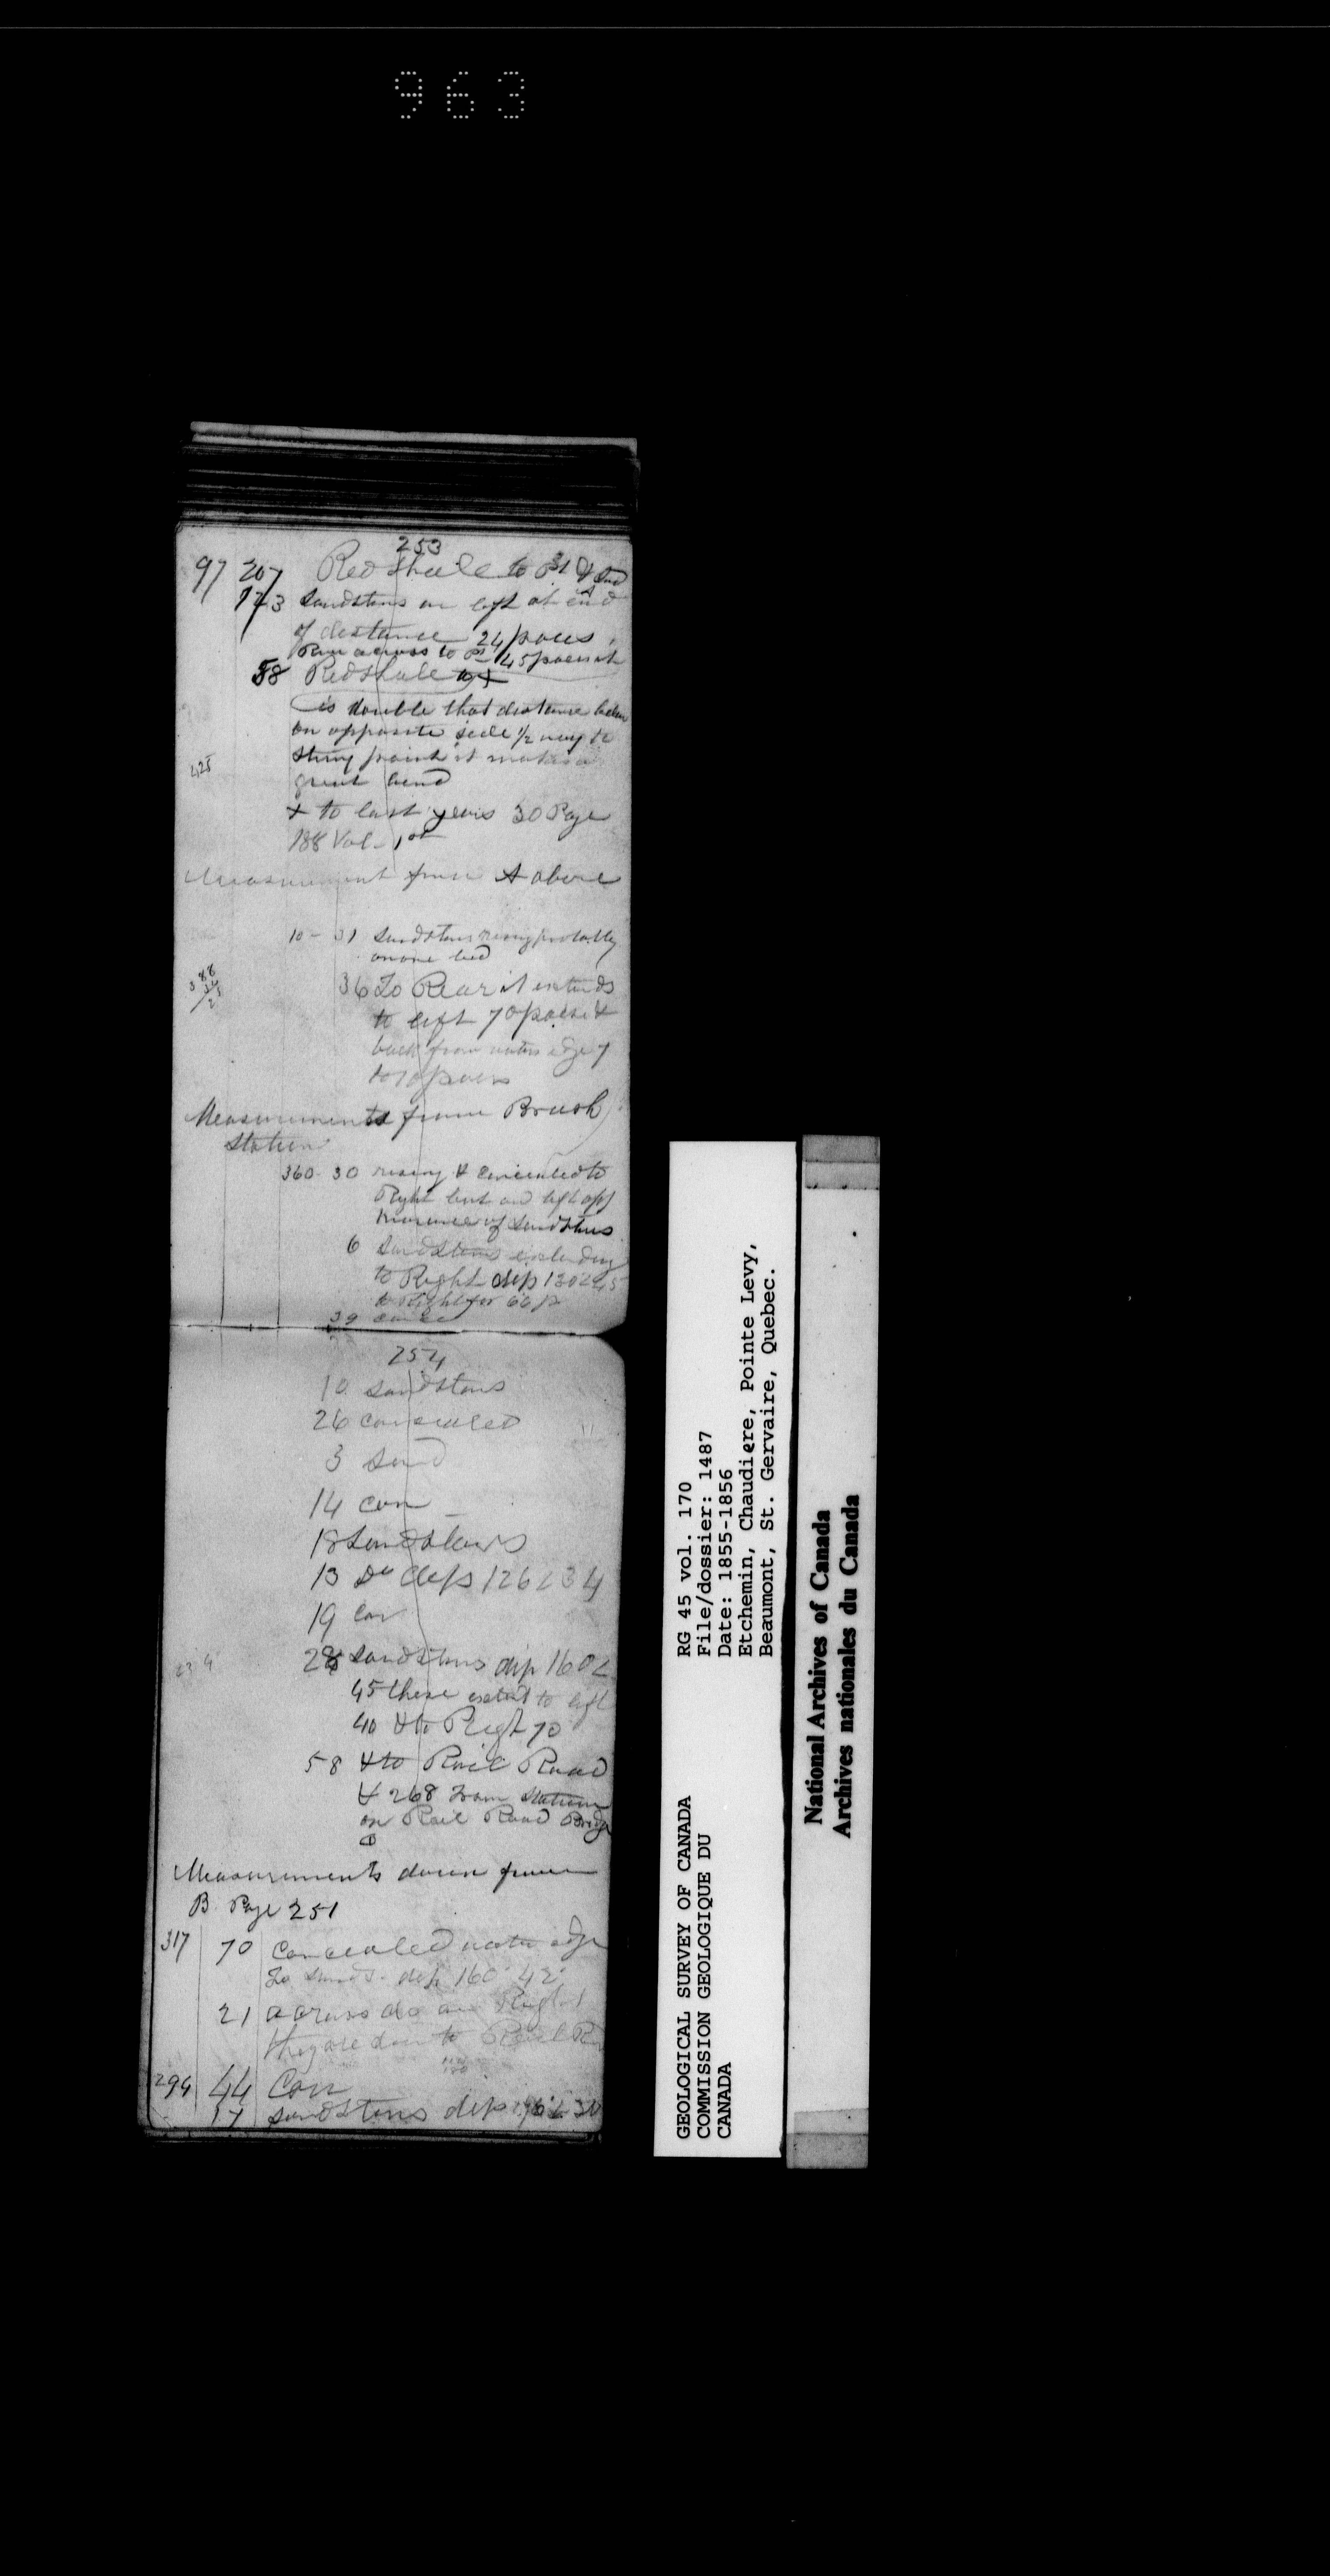 963
253
97 207 Red Shale to
123 Sandstons on left at end
of distance 24 paces
Run across to 45 paces
58 Red Shale to +
is double that distance below
on opposite side 1/2 way to
point it makes a
great bend
425
+ to last years 30 Page
188 Vol. 1st
Measurement from A above
10 - 31 Sandstons rising probably
on one bed
36 To Rear it extends
to left 70 paces &
back from waters edge 7
to 10 paces
Measurements from Brush
Station
360 - 30 rising & concealed to
Right but on left
of Sandstons
6 Sandstons extending
to Right dip 130 < 45
to Right for 66 p
39
254
10 Sandstons
26 concealed
3 Sand
14 con
18 Sandstons
13 Do dip 126 < 34
19 con
28 Sandstons dip 160 <
45 these extend to left
40 & to Right 70
58 & to Rail Road
& 268 from Station
on Rail Road Bridge
Measurements down from
B Page 251
317 70 Concealed water edge
To Sands. dip 160° 42°
21 across do on Right
they are down to Rail R
294 44 Con
17 Sandstons dip
GEOLOGICAL SURVEY OF CANADA
COMMISSION GEOLOGIQUE DU
CANADA
RG 45 vol. 170
File/dossier: 1487
Date: 1855-1856
Etchemin, Chaudiere, Pointe Levy,
Beaumont, St. Gervaire, Quebec.
National Archives of Canada
Archives nationales du Canada